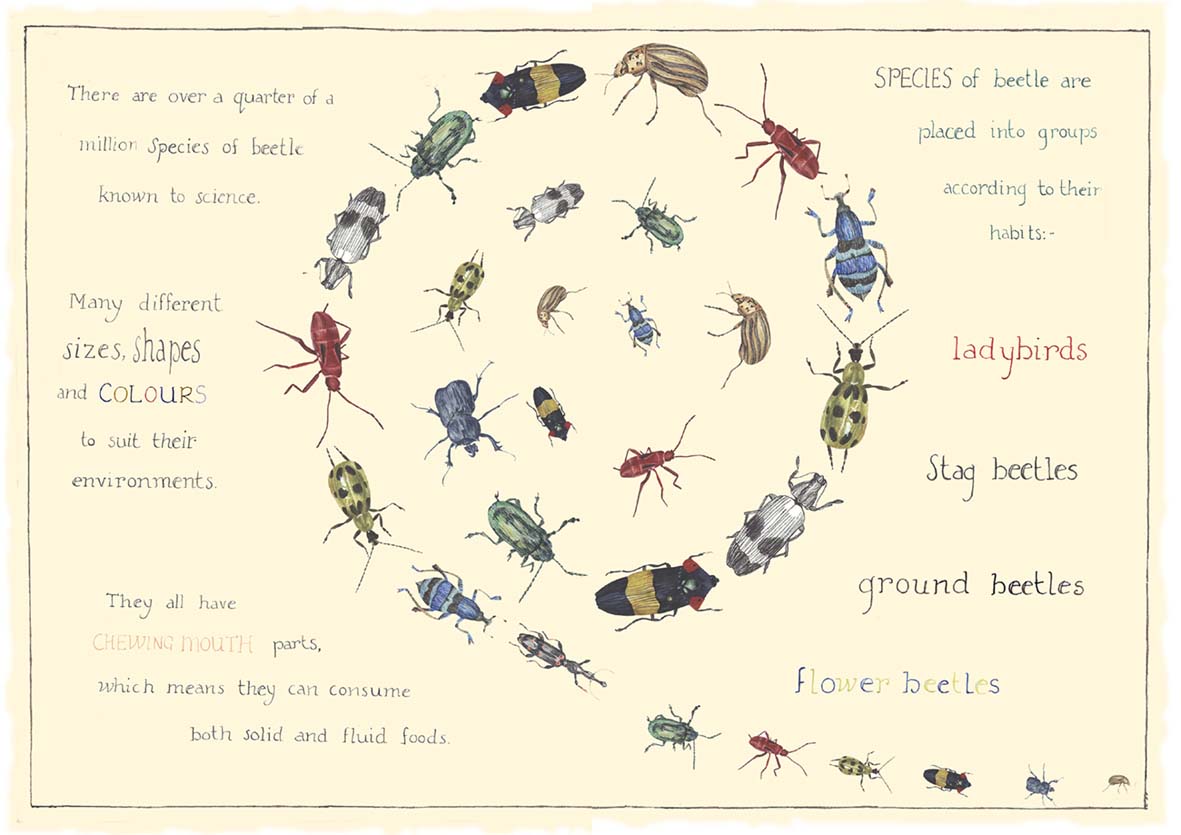 There are over a quarter of a
million species of beetle
known to science.
Many different
sizes, shapes
and COLOURS
to suit their
environments.
They all have
CHEWING MOUTH parts,
which means they can consume
both solid and fluid foods.
SPECIES of beetle are
placed into groups
according to their
habits:-
ladybirds
Stag beetles
ground beetles
flower beetles